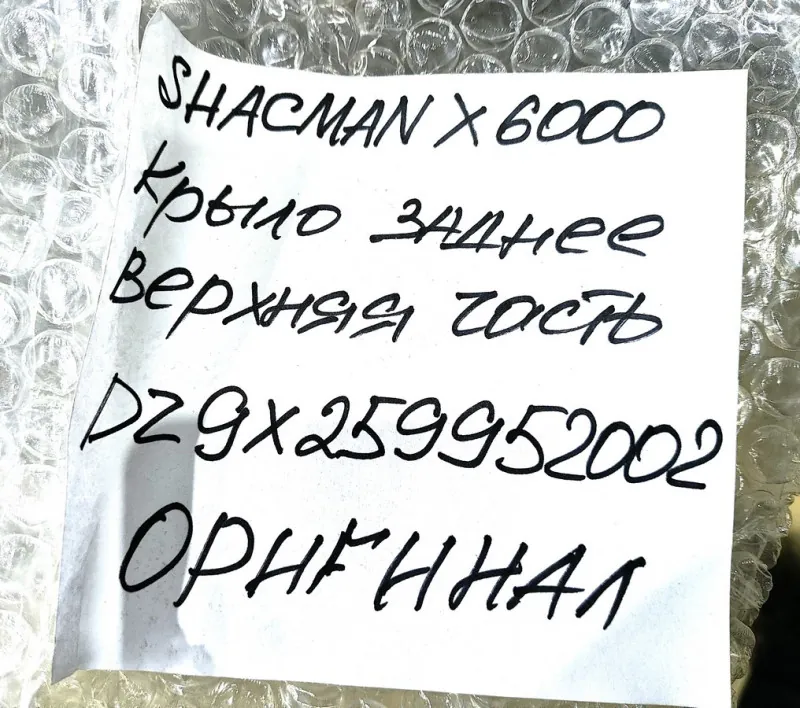 SHACMAN X 6000
Крыло заднее
Верхняя часть
DZ9X259952002
ОРИГИНАЛ